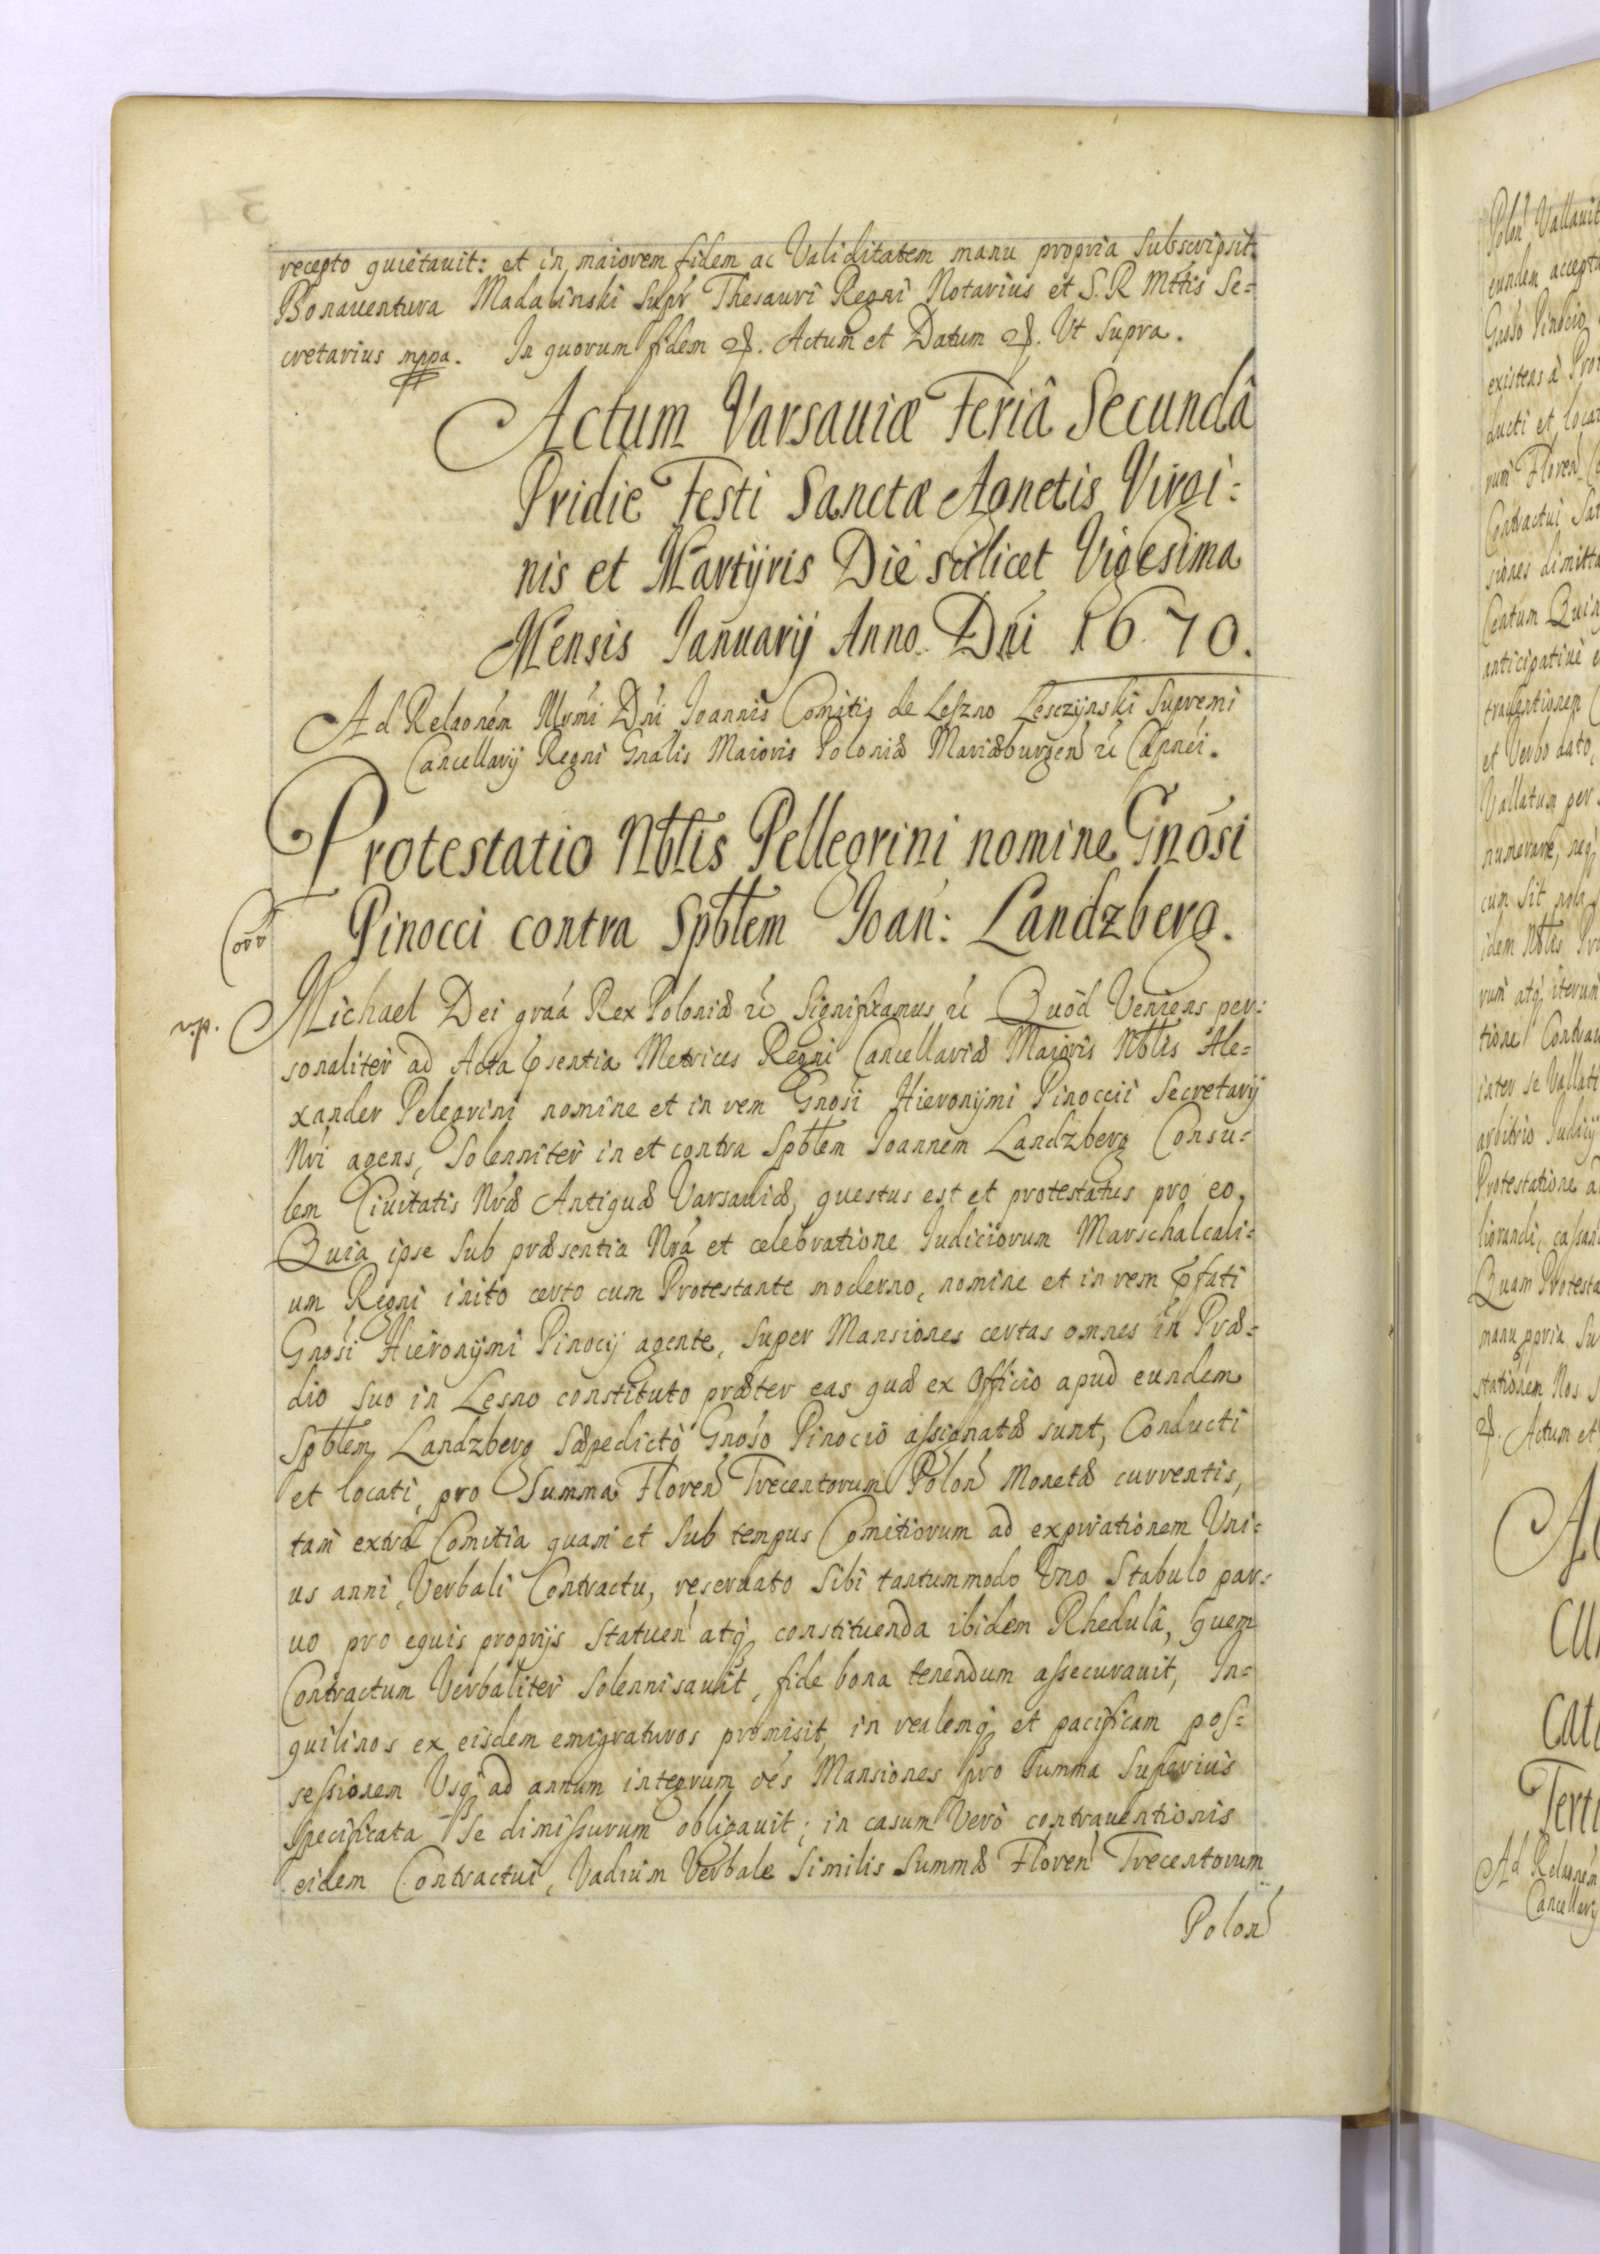 recepto quietauit: et in maiorem fidem ac Validitatem manu propria Subscripsit.
Bonauentura Madalinski Supr Thesauri Regni Notarius et S. R Mttis Se=
cretarius mppa. In quorum fidem &. Actum et Datum &. Ut Supra.
Actum Varsauiæ Feriâ Secundâ
Pridie Festi Sanctæ Agnetis Virgi=
nis et Martÿris Die scilicet Vigesima
Mensis Januarij Anno Dni 1670.
Ad Relaonem Illrmi Dni Joannis Comitis de Leszno Lesczÿnski Supremi
Cancellarij Regni Gnalis Maioris Poloniæ Mariæburgen ec Capnei.
Protestatio Nbtis Pellegrini nomine Gnosi
Pinocci contra Spbtem Joan: Landzberg.
Corr
v.p.
Michael Dei graa Rex Poloniæ ec Significamus ec Quod Veniens per=
sonaliter ad Acta psentia Metrices Regni Cancellariæ Maioris Nbtis Ale=
xander Pelegrini nomine et in rem Gnosi Hieronÿmi Pinoccii Secretarÿ
Nri agens, Solenniter in et contra Spbtem Joannem Landzberg Consu=
lem Ciuitatis Nræ Antiquæ Varsauiæ, questus est et protestatus pro eo,
Quia ipse Sub præsentia Nra et celebratione Judiciorum Marschalcali=
um Regni inito certo cum Protestante moderno, nomine et in rem pfati
Gnosi Hieronÿmi Pinocij agente, Super Mansiones certas omnes in Præ=
dio suo in Lesno constituto præter eas quæ ex Officio apud eundem
Spbtem Landzberg Sæpedicto Gnoso Pinocio assignatæ sunt, Conducti
et locati, pro Summa Floren Trecentorum Polon Monetæ currentis,
tam extra Comitia quam et Sub tempus Comitiorum ad expirationem Uni=
us anni Verbali Contractu, reseruato Sibi tantummodo Uno Stabulo par=
uo pro equis proprijs Statuen atq constituenda ibidem Rhedula, quem
Contractum Verbaliter Solennisauit, fide bona tenendum assecurauit, In=
quilinos ex eisdem emigraturos promisit, in realemq et pacificam pos=
sessionem Usq ad annum integrum oes Mansiones pro Summa Superius
Specificata Se dimissurum obligauit; in casum Vero contrauentionis
eidem Contractui, Vadium Verbale Similis Summæ Floren Trecentorum
Polon
Polon Vallauit
eundem accepta
Gnoso Pinocio
ducti et locat
rum Floren
Contractui Sat
siones dimitte
Centum Quin
anticipatiue e
et Verbo dato,
Vallatum per
numerare, neq
cum Sit
idem Nbtis Pro
rum atq iterum
tione Contrau
inter se Vallati
arbitrio Judicij
Protestatione a
Quam Protesta
manu ppria Su
stationem Nos s
&. Actum et
Ac
Cu
Cat
Terti
Ad Relaonem
Cancellarij